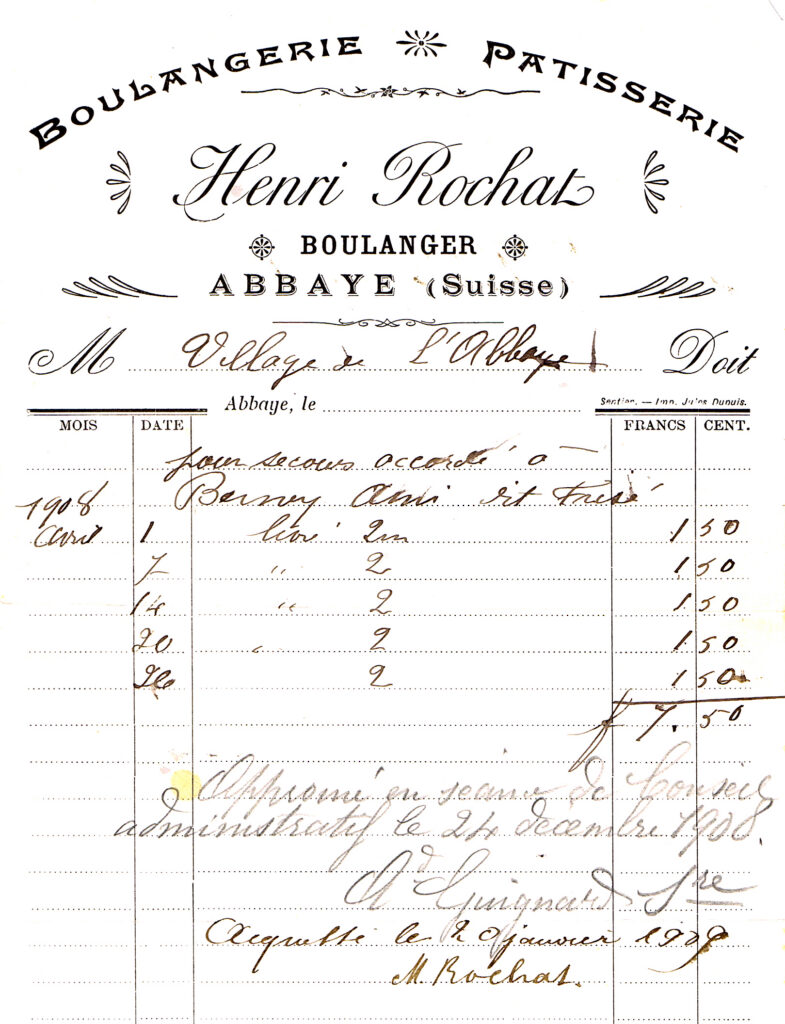 BOULANGERIE PATISSERIE
Henri Rochat
BOULANGER
ABBAYE (Suisse)
M Village de L'Abbaye Doit
Abbaye, le
Sentier. — Imp. Jules Dupuis.
MOIS DATE FRANCS CENT.
pour secours accordé à
1908 Berney Ami dit Frisé
Avril 1 livré 2 1 50
7 " 2 1.50
14 " 2 1.50
20 " 2 1.50
26 2 1 50
f 7.50
Approuvé en séance de Conseil
administratif le 24 decembre 1908.
Ad Guignard Sre
Acquitté le 20 janvier 1909
M. Rochat.